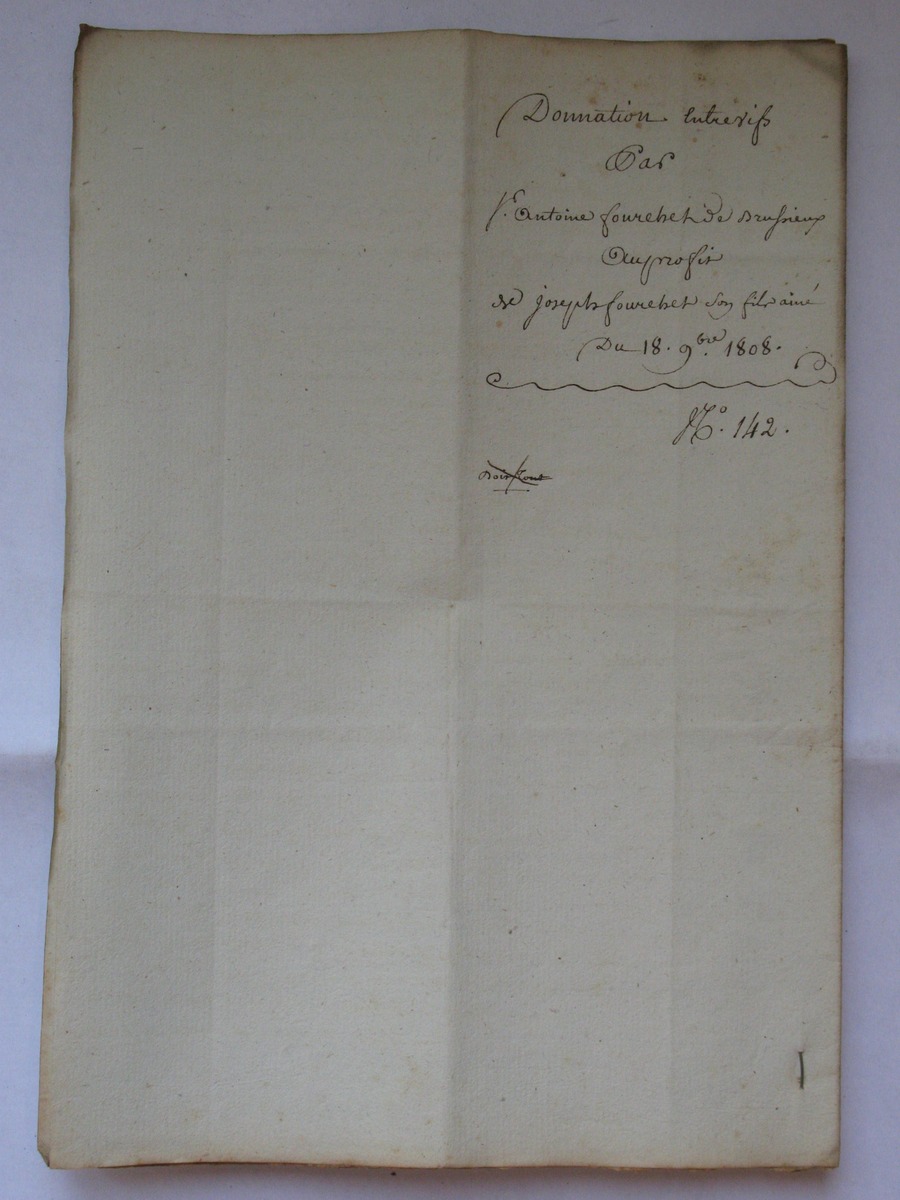 Donnation Entrevifs
Par
Sr. Antoine fourchet de Brussieux
Au profit
de joseph fourchet son fils ainé
Du 18. 9bre. 1808.
No. 142.
Doit tout